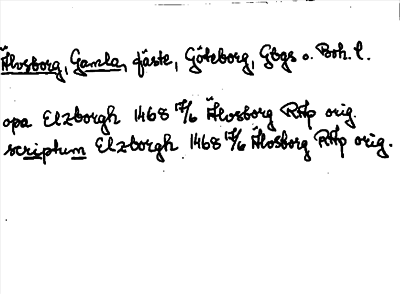 Älvsborg, Gamla, fäste, Göteborg, Gbgs o. Boh. l.
opa Elzborgh 1468 17/6 Älvsborg RAp orig.
scriptum Elzborgh 1468 17/6 Älvsborg RAp orig.